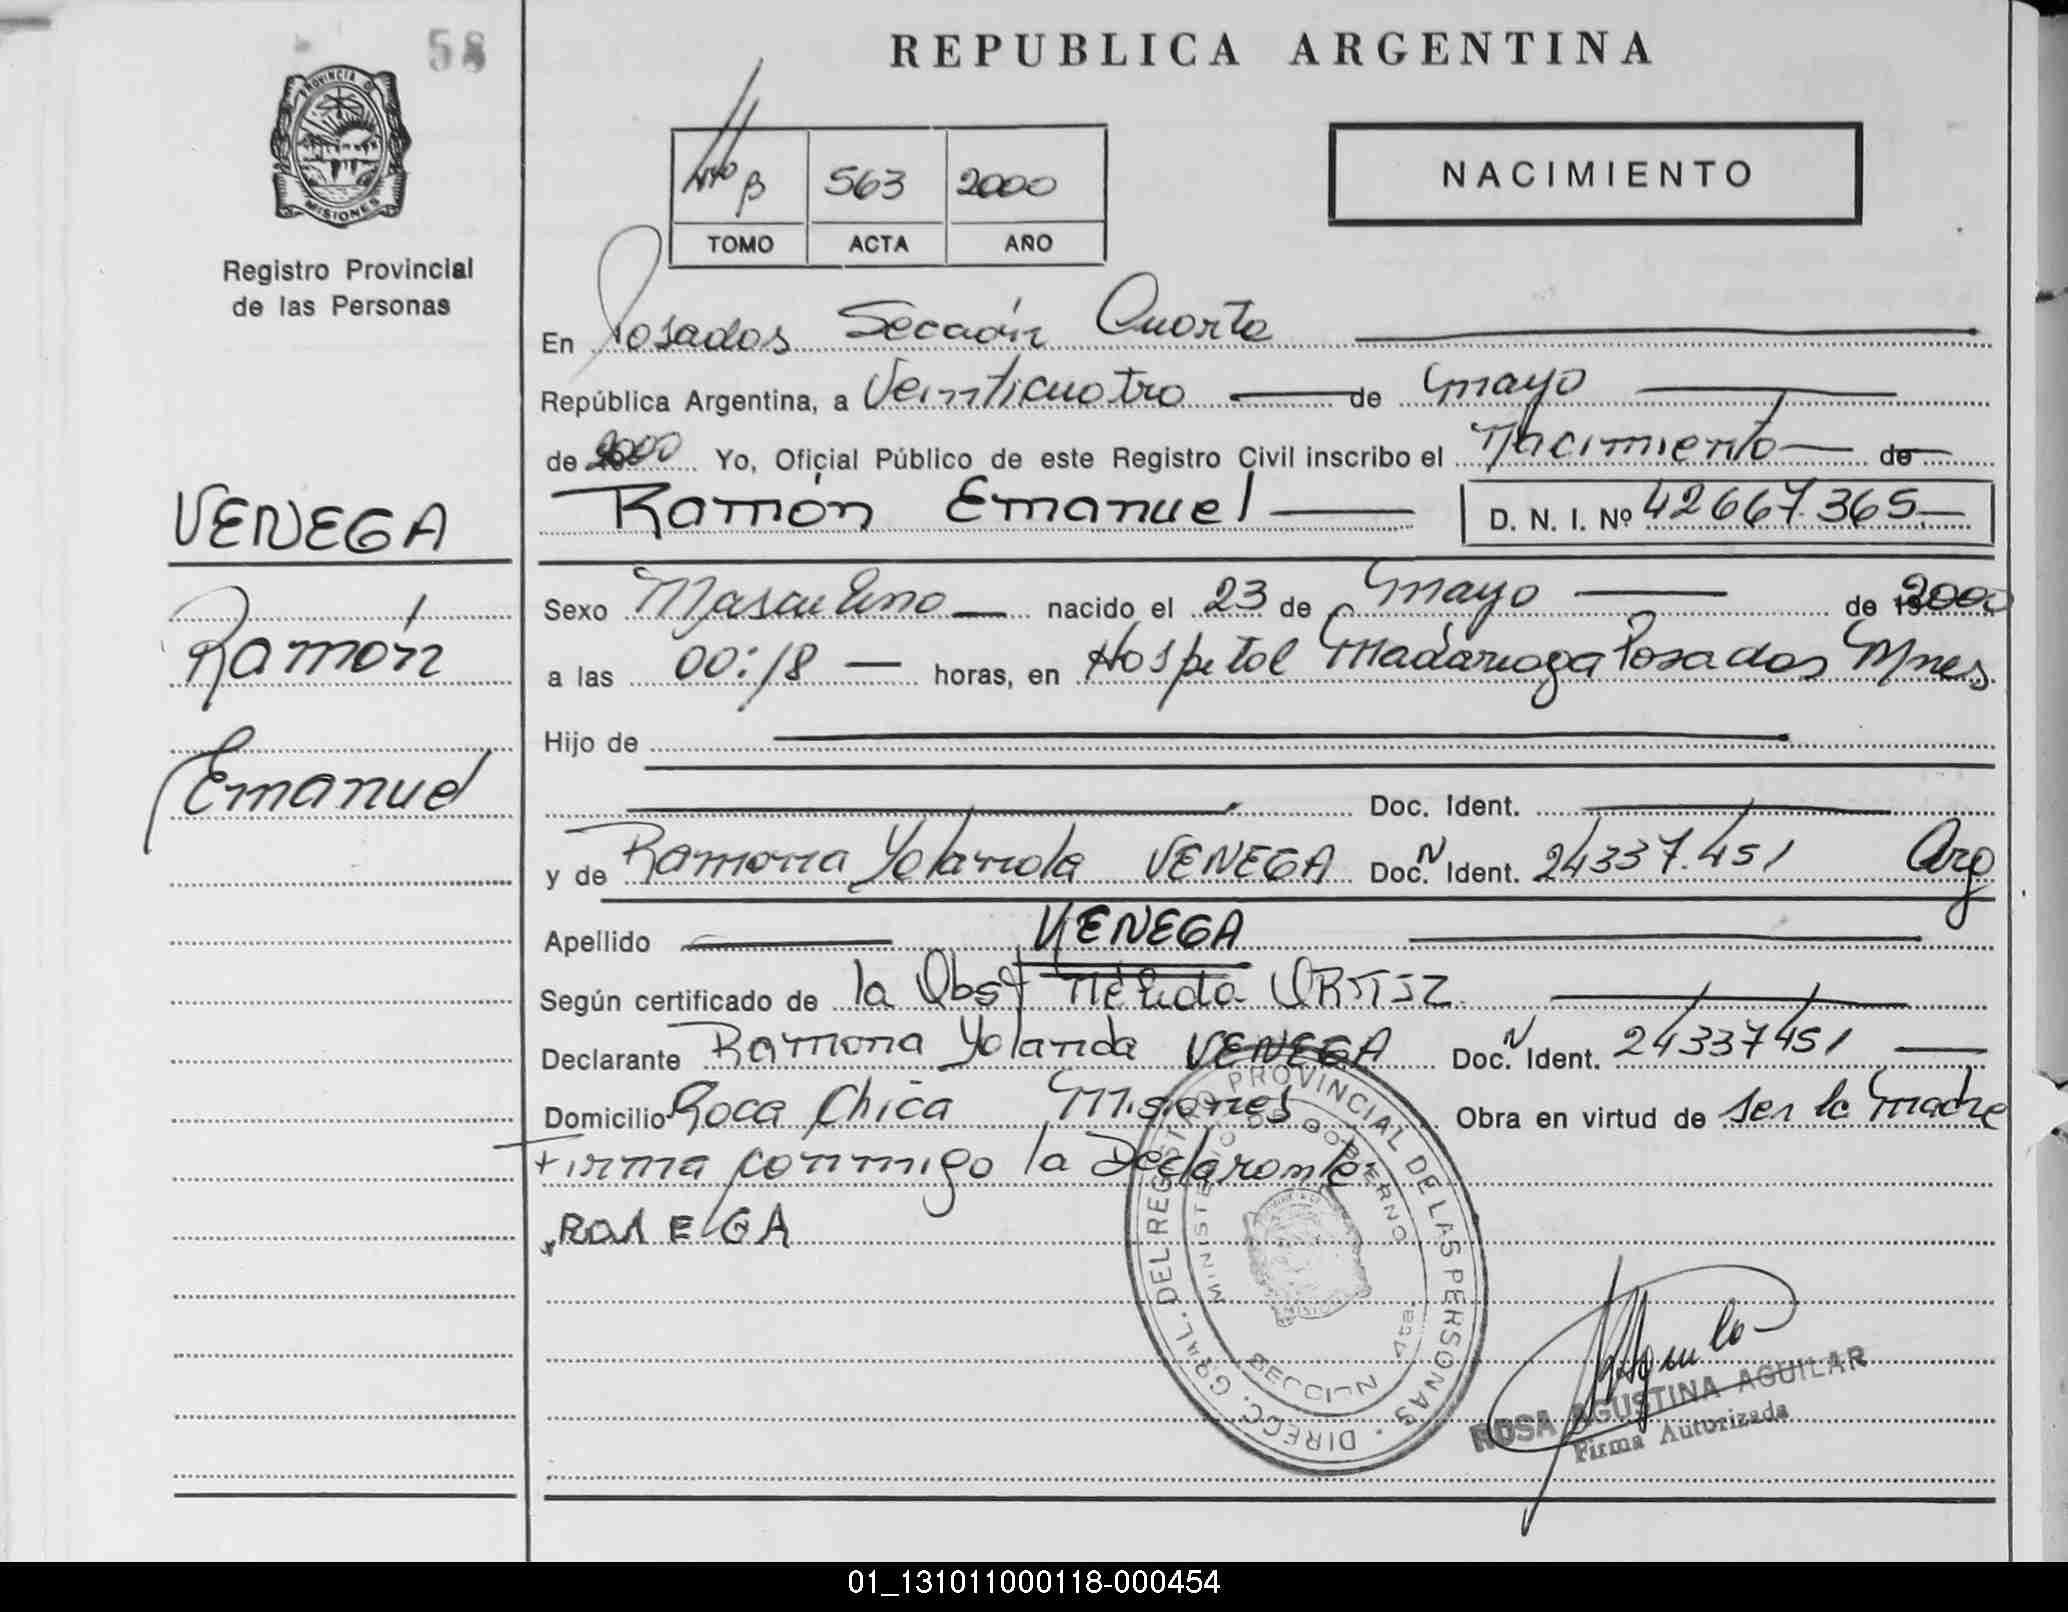 58
REPUBLICA ARGENTINA
PROVINCIA DE MISIONES
Registro Provincial
de las Personas
Nto B 563 2000
TOMO ACTA AÑO
NACIMIENTO
En Posadas Sección Cuarta
República Argentina, a Veinticuatro de mayo
de 2000 Yo, Oficial Público de este Registro Civil inscribo el Nacimiento de
Ramón Emanuel D. N. I. Nº 42667.365
VENEGA
Ramón
Emanuel
Sexo Masculino nacido el 23 de mayo de 2000
a las 00:18 horas, en Hospital Madariaga Posadas Mnes
Hijo de
Doc. Ident.
y de Ramona Yolanda VENEGA Doc. N Ident. 24337.451 Arg
Apellido VENEGA
Según certificado de la Obst Nélida ORTIZ
Declarante Ramona Yolanda VENEGA Doc. N Ident. 24337451
Domicilio Roca Chica Misiones Obra en virtud de ser la madre
Firma conmigo la Declarante
DIRECC. GRAL. DEL REGISTRO PROVINCIAL DE LAS PERSONAS
MINISTERIO DE GOBERNO
SECCION 4ta
ROSA AGUSTINA AGUILAR
Firma Autorizada
01_131011000118-000454